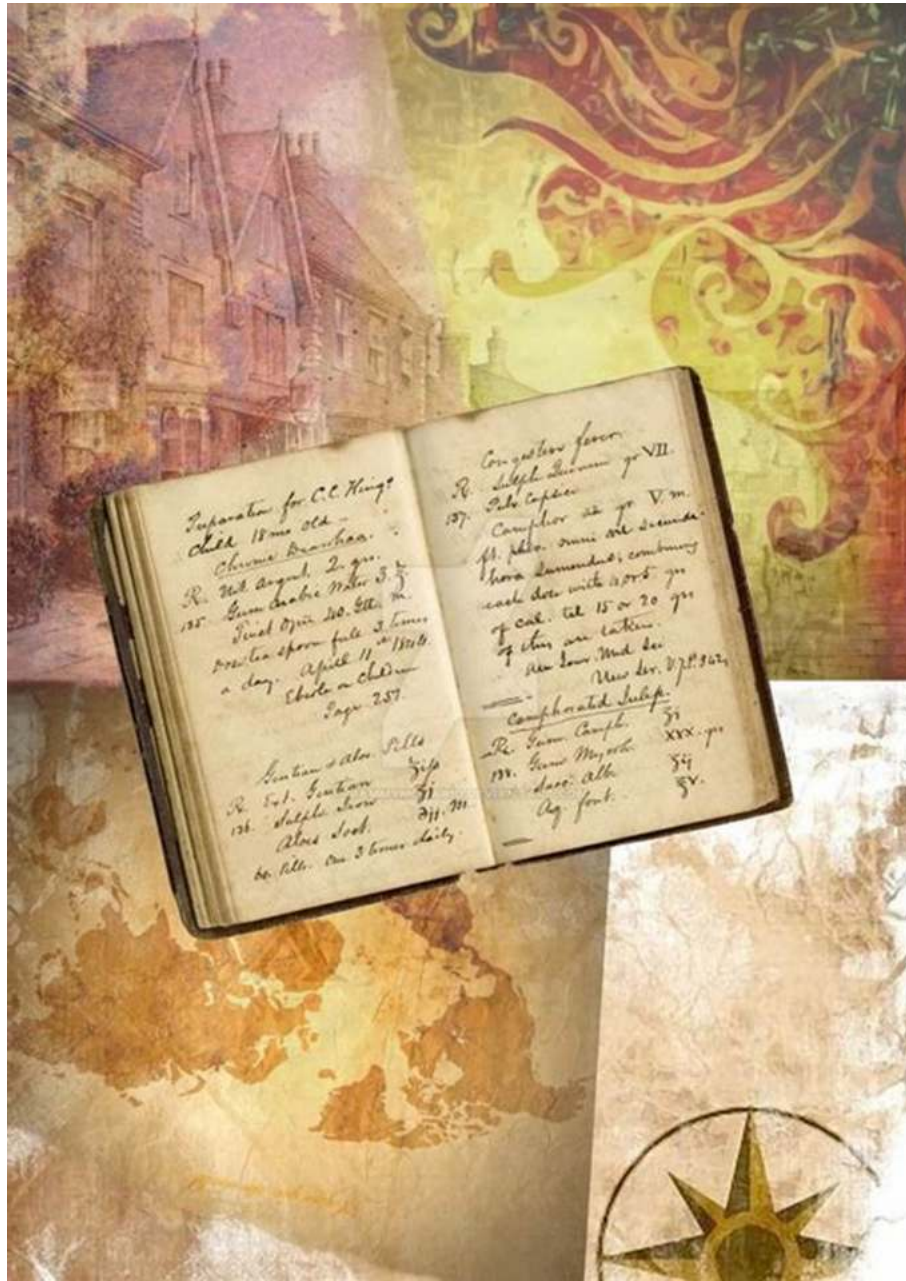 Preparation for C.C. King's
Child 18 mo old –
Chronic Diarrhea.
R. Nit. Argent. 2 grs.
135. Gum Arabic Water 3. ℥
Tinct Opii 40. Gtt. m.
One tea spoon full 3 times
a day. April 11th
Eberle on Children
Page 257
Gentian & Aloe. Pills
R. Ext. Gentian ʒiſs
136. Sulph Iron ʒi
Aloes Soct. ʒij. M.
60. Pills. One 3 times daily.
Congestive fever.
R. Sulph Quinine gr VII.
137. Pulv. Capsici
Camphor aa gr V. m.
ft. pulv. omni secunda
hora Sumendus; combining
each dose with 4 or 5 grs
of cal. til 15 or 20 grs
of this are taken.
Am Jour. Med Sci
New Ser. V. 7. P.
Camphorated Julep.
R. Gum Camph. ʒi
138. Gum Myrrh. XXX. grs
Sacc: Alb. ℥ij
Aq. font. ℥x.